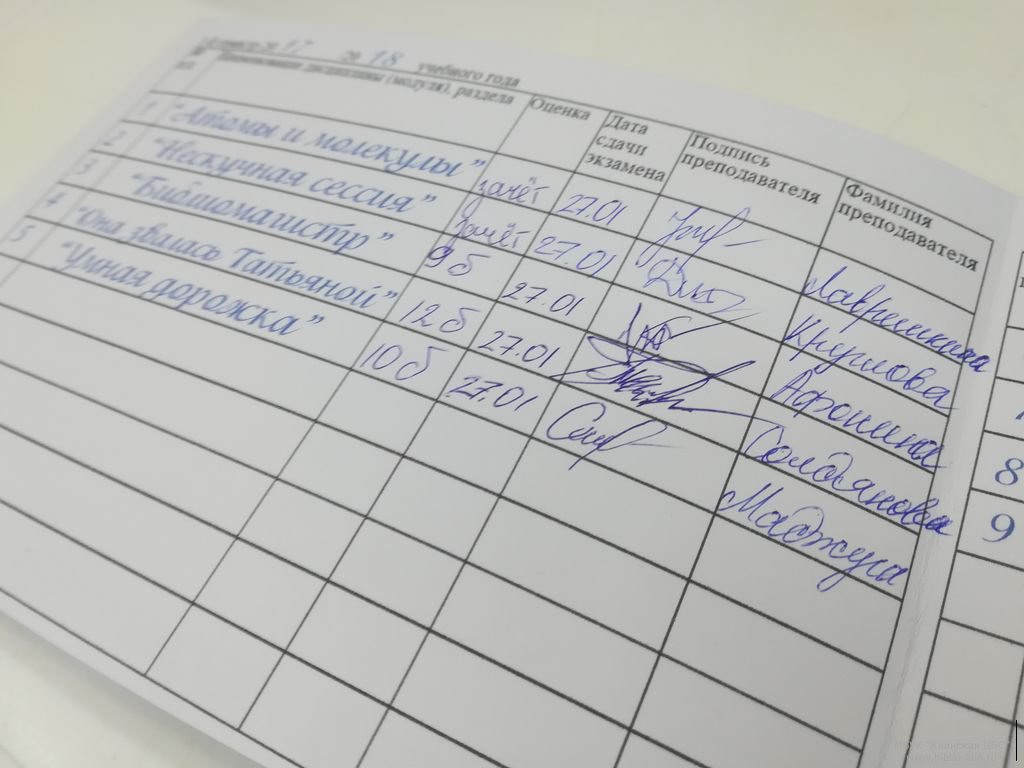 17 18 учебного года
Наименование дисциплины (модуля), раздела
Оценка
Дата
сдачи
экзамена
Подпись
преподавателя
Фамилия
преподавателя
1 "Атомы и молекулы" зачёт 27.01 Лаврешкина
2 "Нескучная сессия" зачёт 27.01 Круглова
3 "Библиомагистр" 9б 27.01 Афонина
4 "Она звалась Татьяной" 12б 27.01 Солодянова
5 "Умная дорожка" 10б 27.01 Маджуга
8
9
МБУК "Клинская ЦБС"
www.biblio-klin.ru